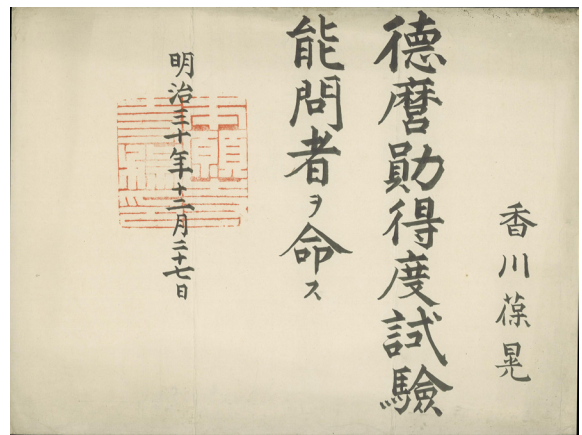 香川葆晃
德麿勛得度試驗
能問者ヲ命ス
明治三十年十二月二十七日